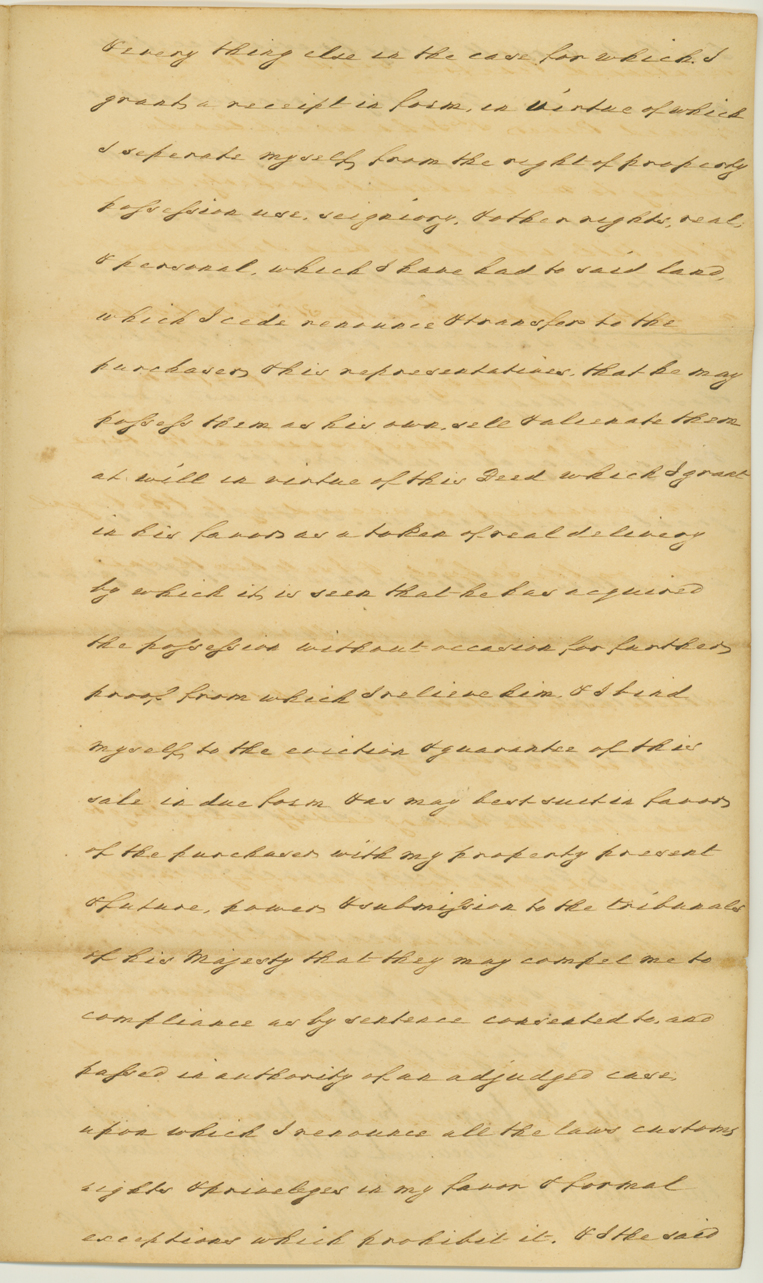 & every thing else in the case for which I
grant a receipt in form, in virtue of which
I seperate myself, from the right of property
possession use, seigniory, & other rights, real,
& personal, which I have had to said land,
which I cede renounce & transfer to the
purchaser, & his representatives, that he may
possess them as his own, sell & alienate them
at will in virtue of this Deed which I grant
in his favor as a token of real delivery
by which it is seen that he has acquired
the possession without occasion for further
proof from which I relieve him, & I bind
myself, to the eviction & guarantee of this
sale in due form & as may best suit in favor
of the purchaser with my property present
& future, power, & submission to the tribunals
of his Majesty that they may compel me to
compliance as by sentence consented to, and
passed in authority of an adjudged case,
upon which I renounce all the laws customs
rights & priveleges in my favor & formal
exceptions which prohibit it. & I the said